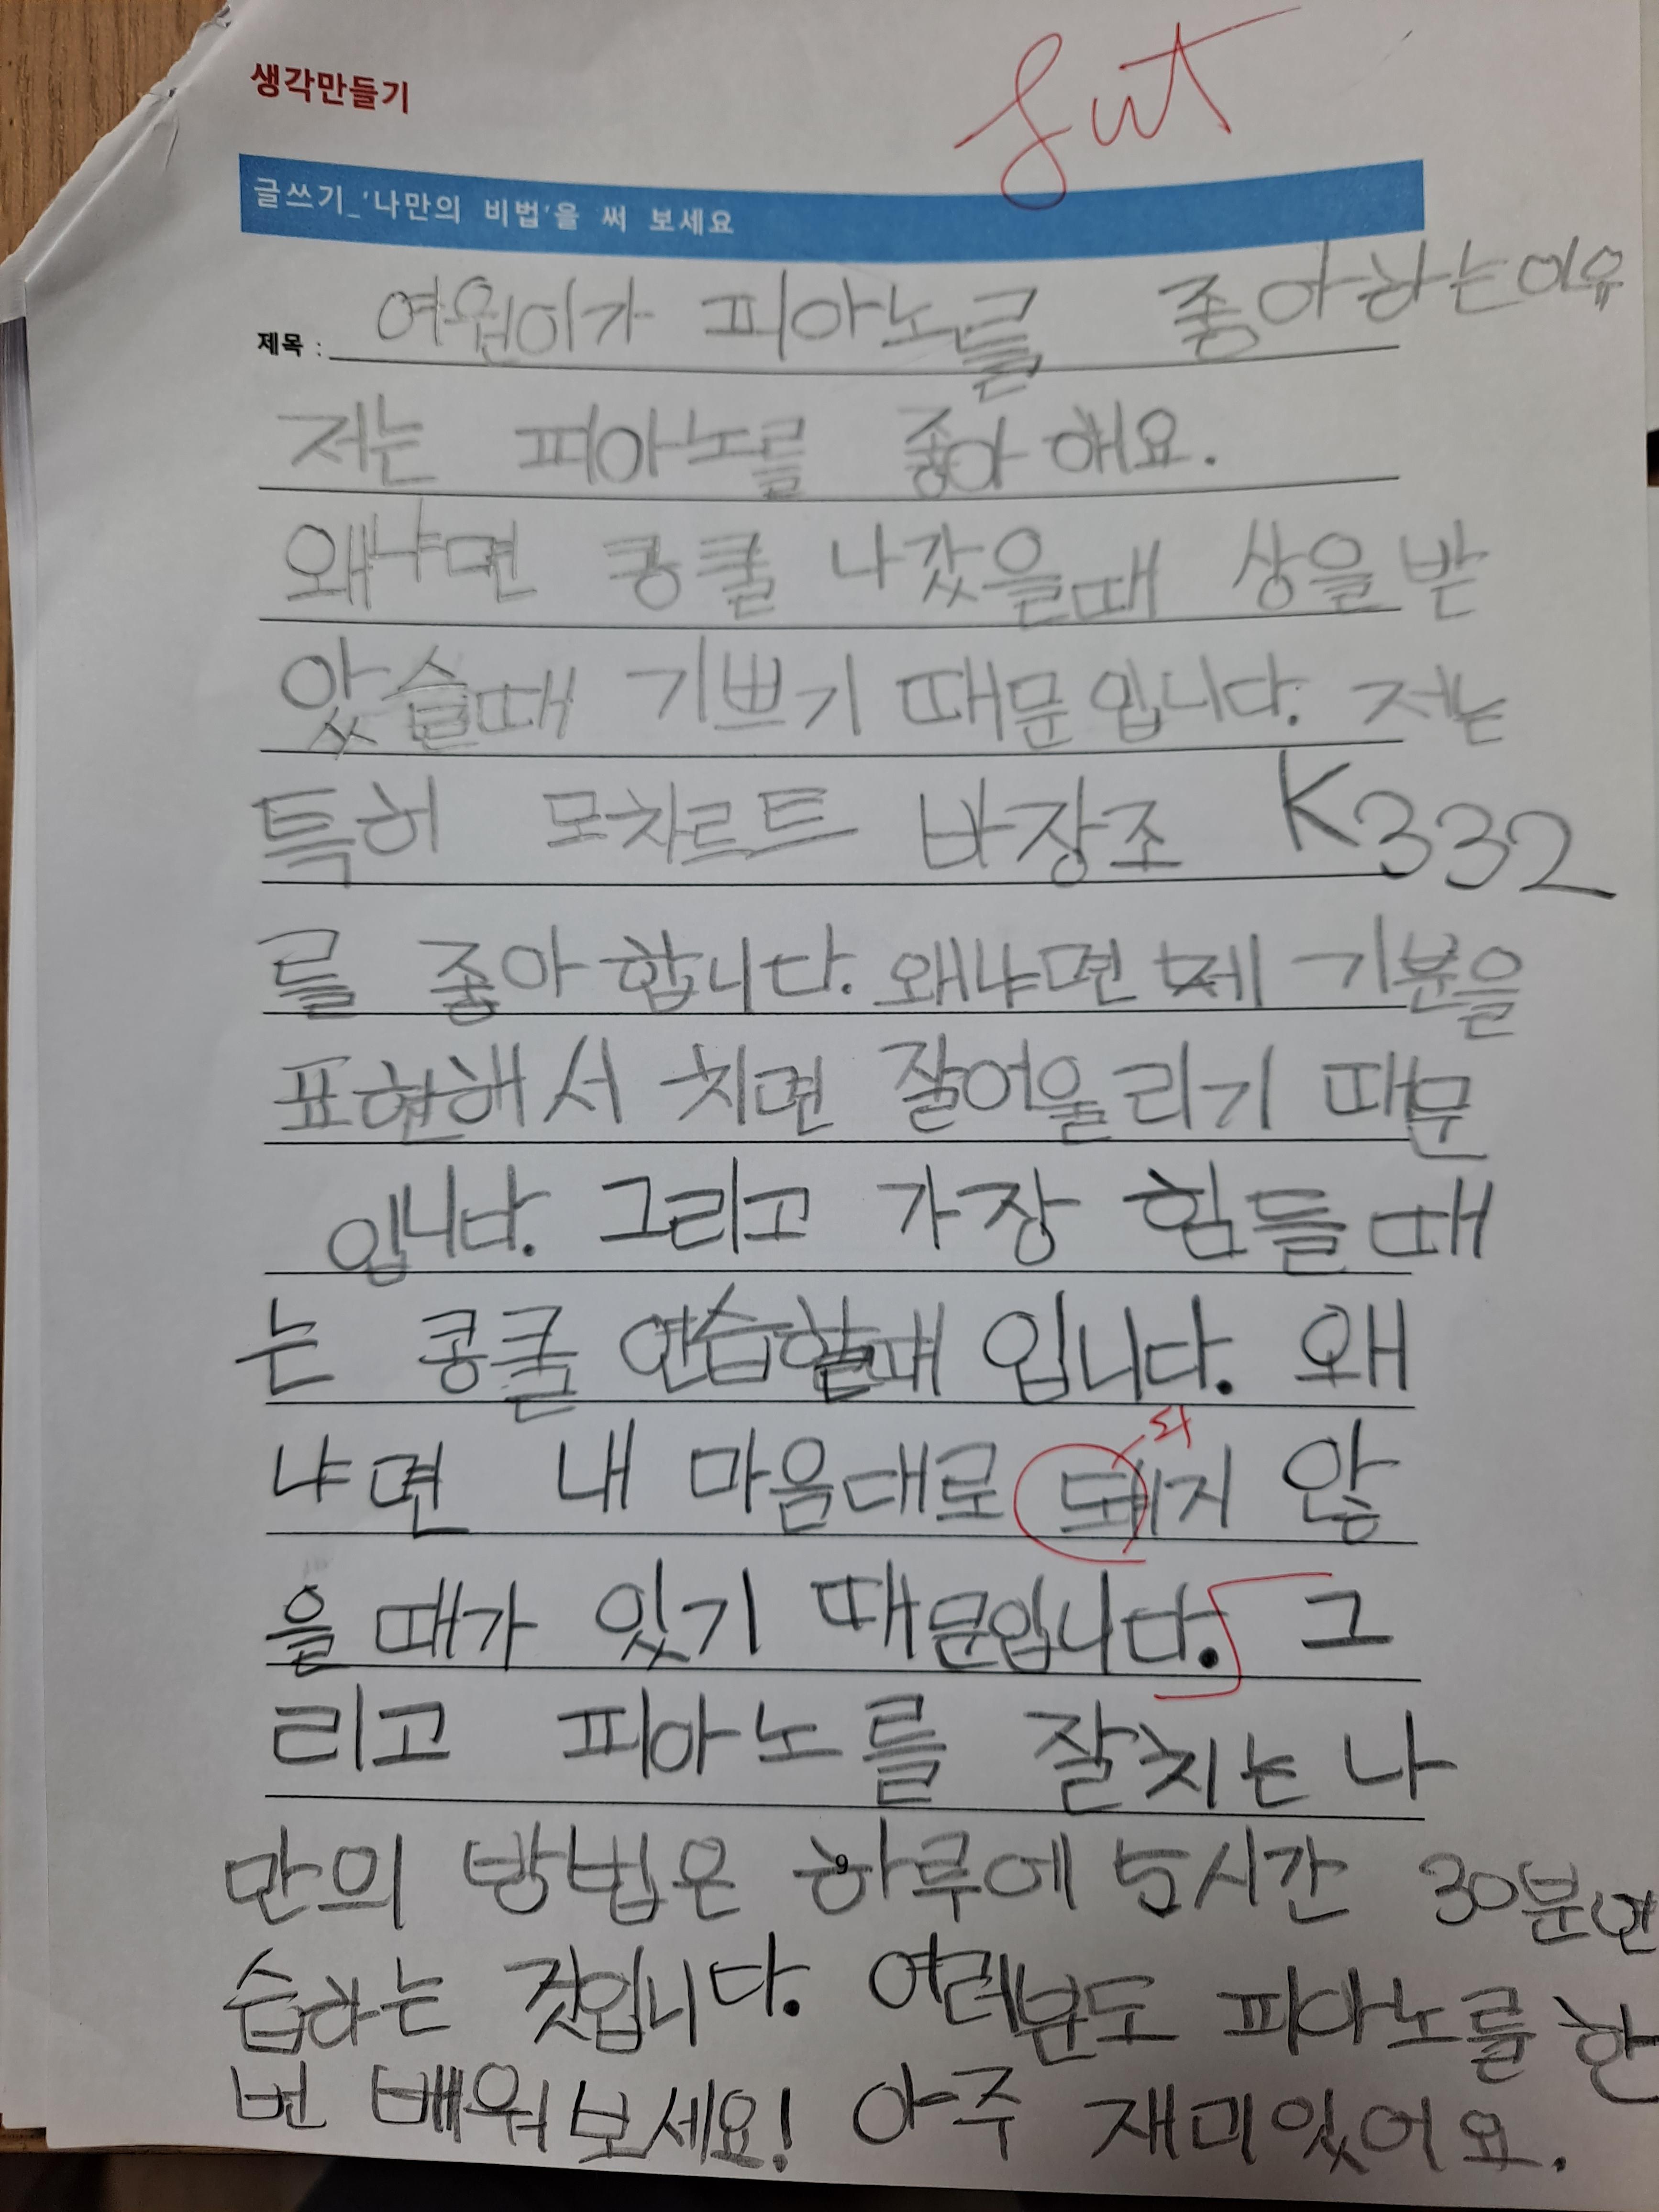 생각만들기
글쓰기_'나만의 비법'을 써 보세요
제목 : 여원이가 피아노를 좋아하는이유
저는 피아노를 좋아해요.
왜냐면 콩쿨 나갔을때 상을 받
았슬때 기쁘기 때문입니다. 저는
특히 모차르트 바장조 K332
를 좋아합니다. 왜냐면 제 기분을
표현해서 치면 잘어울리기 때문
입니다. 그리고 가장 힘들때
는 콩쿨 연습할때 입니다. 왜
냐면 내 마음대로 돼지 않
되
을 때가 있기 때문입니다. 그
리고 피아노를 잘치는 나
만의 방법은 하루에 5시간 30분연
9
습하는 것입니다. 여레분도 피아노를 한
번 배워보세요! 아주 재미있어요.